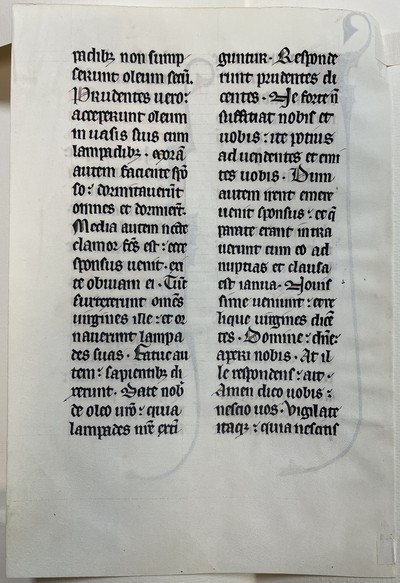 padibꝫ non sump
serunt oleum secū.
Prudentes uero:
acceperunt oleum
in uasis suis cum
lampadibꝫ. Morā
autem faciente spō
so: dormitauerūt
omnes et dormierūt.
Media autem nocte
clamor fcs est: ecce
sponsus uenit. exi
te obuiam ei. Tūc
surrexerunt omēs
uirgines ille: et or
nauerunt lampa
des suas. Fatue au
tem: sapientibꝫ di
xerunt. Date nob
de oleo uro: quia
lampades nre exti
guntur. Responde
runt prudentes di
centes. Ne forte ñ
sufficiat nobis et
uobis: ite potius
ad uendentes et emi
te uobis. Dum
autem irent emere
uenit sponsus: et q̄
parate erant intra
uerunt cum eo ad
nuptias et clausa
est ianua. Nouis
sime ueniunt: et re
lique uirgines dicē
tes. Domine: dne:
aperi nobis. At il
le respondens: ait.
Amen dico uobis:
nescio uos. Vigilate
itaqꝫ: quia nescitis